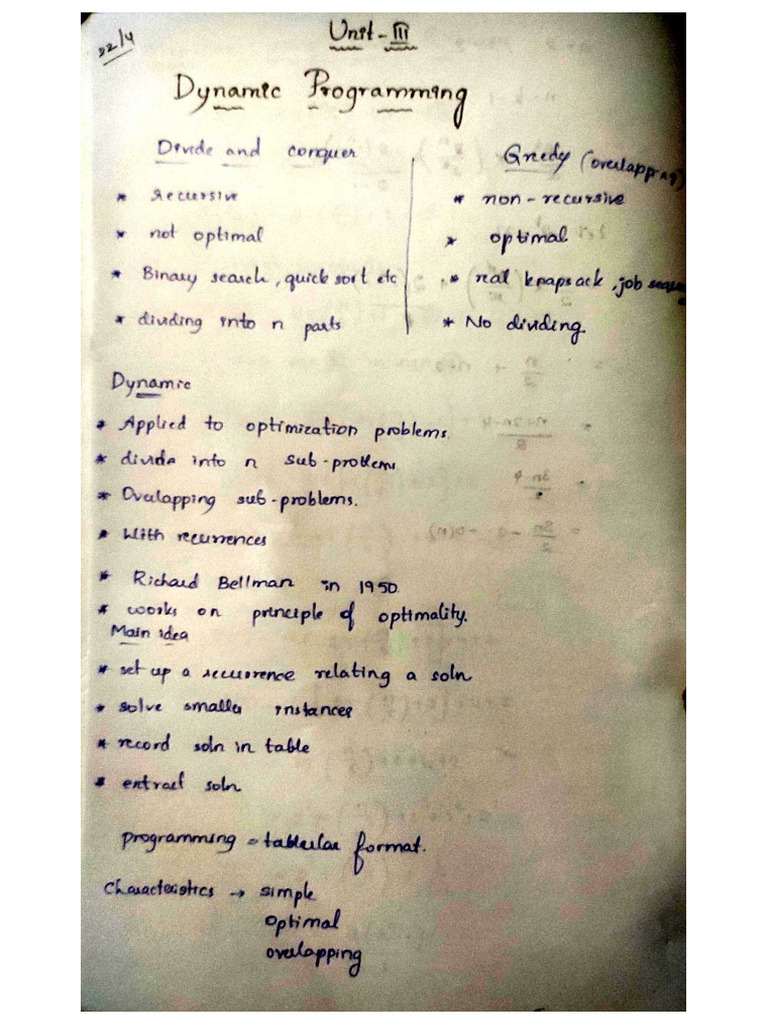 22/4
Unit - III
Dynamic Programming
Divide and conquer
* recursive
* not optimal
* Binary search, quick sort etc
* dividing into n parts
Greedy (overlapping)
* non-recursive
* optimal
* real knapsack, job
* No dividing.
Dynamic
* Applied to optimization problems.
* divide into n sub-problems
* Overlapping sub-problems.
* With recurrences
* Richard Bellman in 1950.
* works on principle of optimality.
Main idea
* set up a recurrence relating a soln
* solve smaller instances
* record soln in table
* extract soln
programming = tabular format.
Characteristics → simple
optimal
overlapping